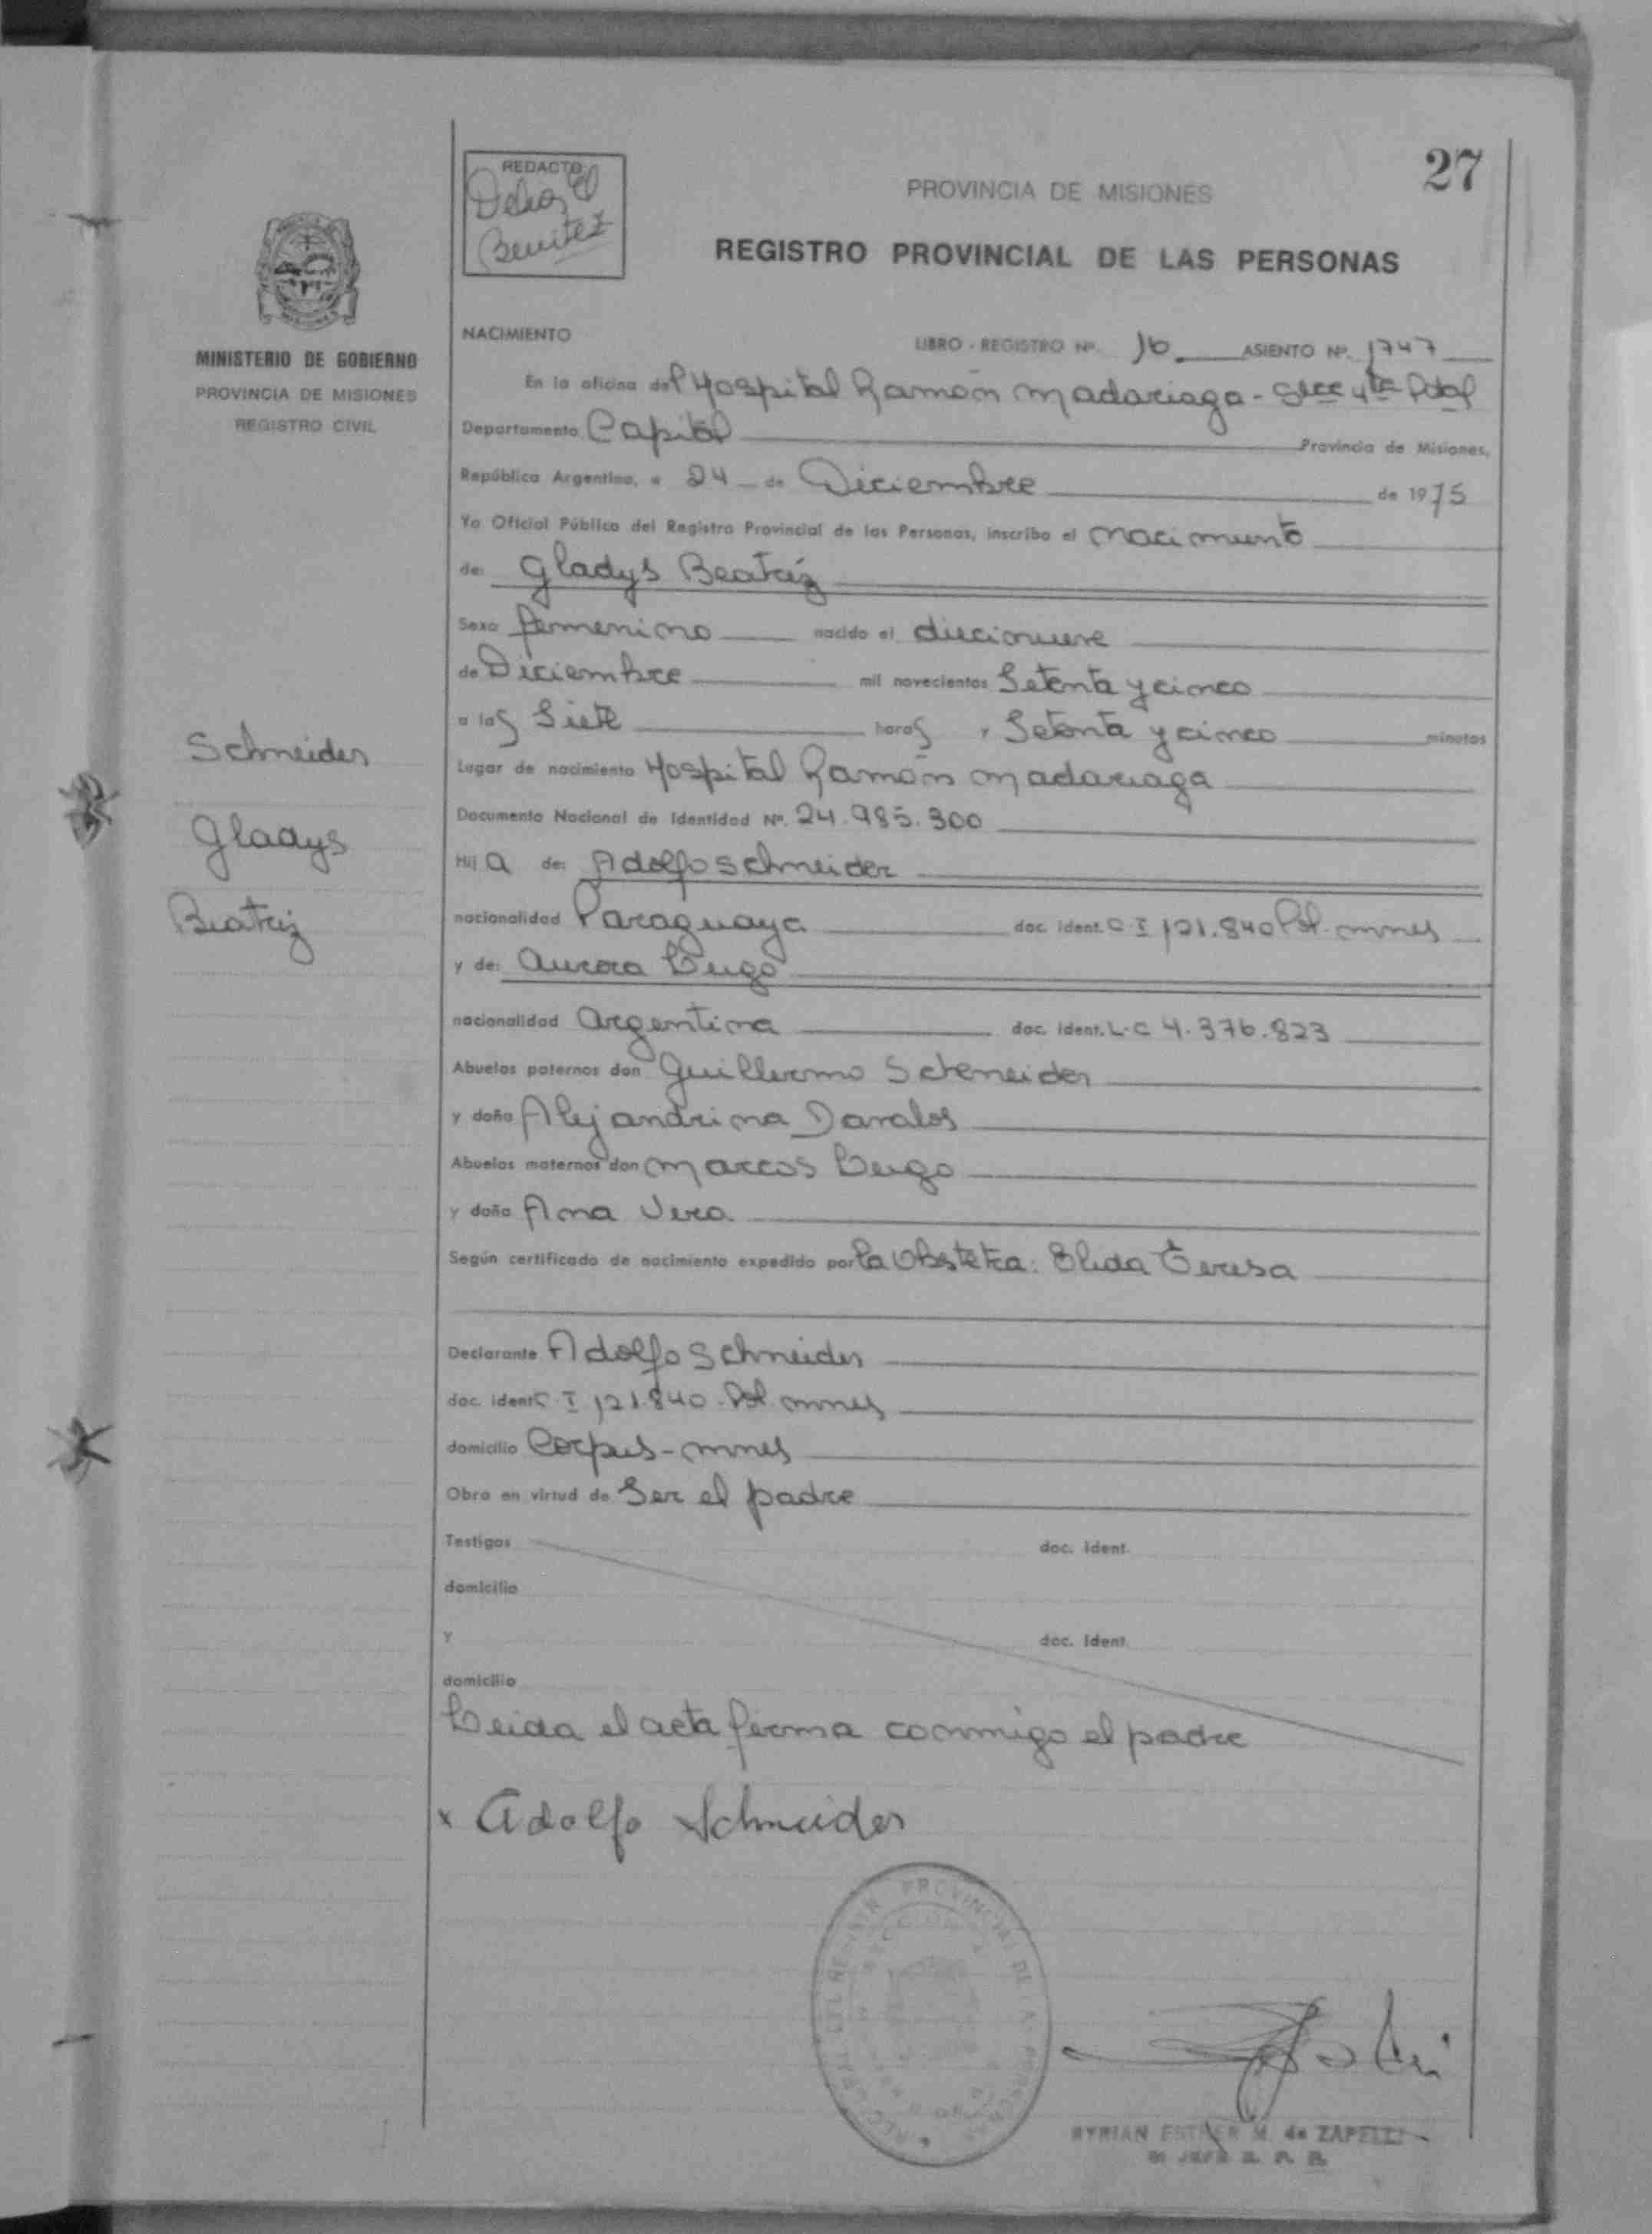 27
REDACTO:
Benitez
PROVINCIA DE MISIONES
REGISTRO PROVINCIAL DE LAS PERSONAS
MINISTERIO DE GOBIERNO
PROVINCIA DE MISIONES
REGISTRO CIVIL
NACIMIENTO LIBRO - REGISTRO Nº. 16 ASIENTO Nº. 1747
En la oficina del Hospital Ramón Madariaga - Secc 4ta Pdal
Departamento Capital Provincia de Misiones,
República Argentina, a 24 de Diciembre de 1975
Yo Oficial Público del Registro Provincial de las Personas, inscribo el nacimiento
de: Gladys Beatriz
Sexo femenino nacido el diecinueve
de Diciembre mil novecientos Setenta y cinco
a las Siete horas y Setenta y cinco minutos
Lugar de nacimiento Hospital Ramón Madariaga
Documento Nacional de Identidad Nº. 24.985.300
Hija de: Adolfo Schneider
nacionalidad Paraguaya doc. ident. C.I 121.840 Pol. mnes
y de: Aurora Lugo
nacionalidad Argentina doc. ident. L.C 4.376.823
Abuelos paternos don Guillermo Scheneider
y doña Alejandrina Davalos
Abuelos maternos don Marcos Lugo
y doña Ana Vera
Según certificado de nacimiento expedido por la Obstetra: Elida Teresa
Declarante Adolfo Schneider
doc. ident. C.I 121.840 - Pol. mnes
domicilio Corpus - mnes
Obra en virtud de Ser el padre
Testigos doc. ident.
domicilio
y doc. ident.
domicilio
Leida el acta firma conmigo el padre
x Adolfo Schneider
Schneider
Gladys
Beatriz
ESTHER M. de ZAPELLI